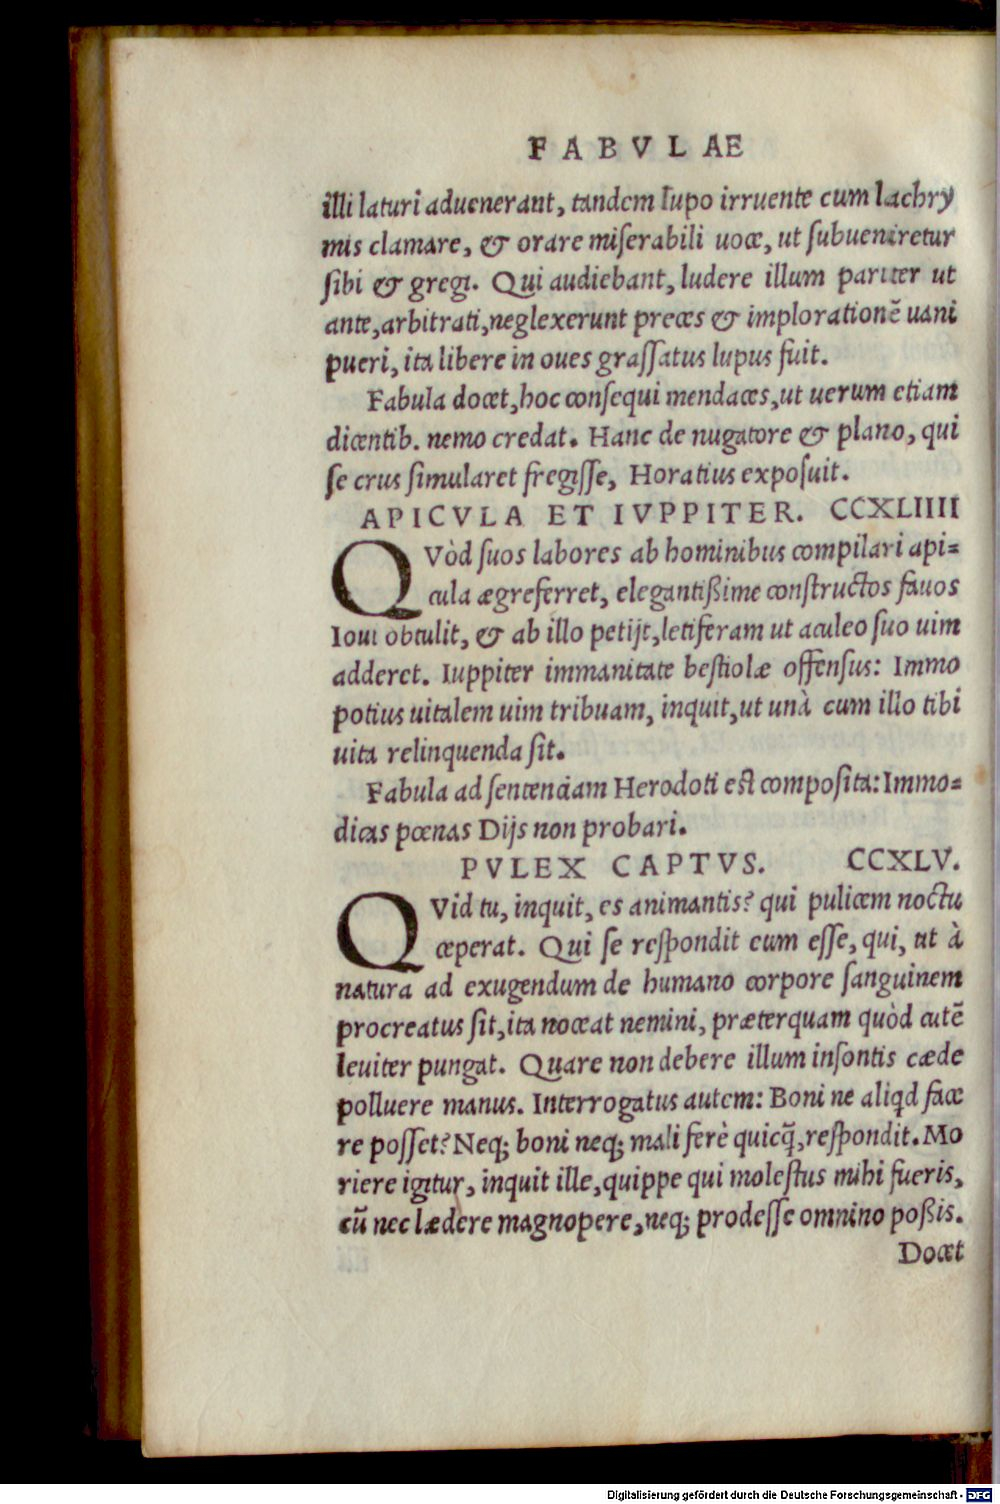 FABVLAE
illi laturi aduenerant, tandem lupo irruente cum lachry
mis clamare, & orare miserabili uoce, ut subueniretur
sibi & gregi. Qui audiebant, ludere illum pariter ut
ante, arbitrati, neglexerunt preces & imploratione͂ uani
pueri, ita libere in oues grassatus lupus fuit.
Fabula docet, hoc consequi mendaces, ut uerum etiam
dicentib. nemo credat. Hanc de nugatore & plano, qui
se crus simularet fregisse, Horatius exposuit.
APICVLA ET IVPPITER. CCXLIIII
QVòd suos labores ab hominibus compilari api=
cula ægreferret, elegantißime constructos fauos
Ioui obtulit, & ab illo petijt, letiferam ut aculeo suo uim
adderet. Iuppiter immanitate bestiolæ offensus: Immo
potius uitalem uim tribuam, inquit, ut unà cum illo tibi
uita relinquenda sit.
Fabula ad sentenciam Herodoti est composita: Immo=
dicas pœnas Dijs non probari.
PVLEX CAPTVS. CCXLV.
QVid tu, inquit, es animantis? qui pulicem noctu
ceperat. Qui se respondit eum esse, qui, ut à
natura ad exugendum de humano corpore sanguinem
procreatus sit, ita noceat nemini, præterquam quòd cutẽ
leuiter pungat. Quare non debere illum insontis cæde
polluere manus. Interrogatus autem: Boni ne aliqd face
re posset? Neq; boni neq; mali ferè quicq̃, respondit. Mo
riere igitur, inquit ille, quippe qui molestus mihi fueris,
cũ nec lædere magnopere, neq; prodesse omnino poßis.
Docet
Digitalisierung gefördert durch die Deutsche Forschungsgemeinschaft - DFG